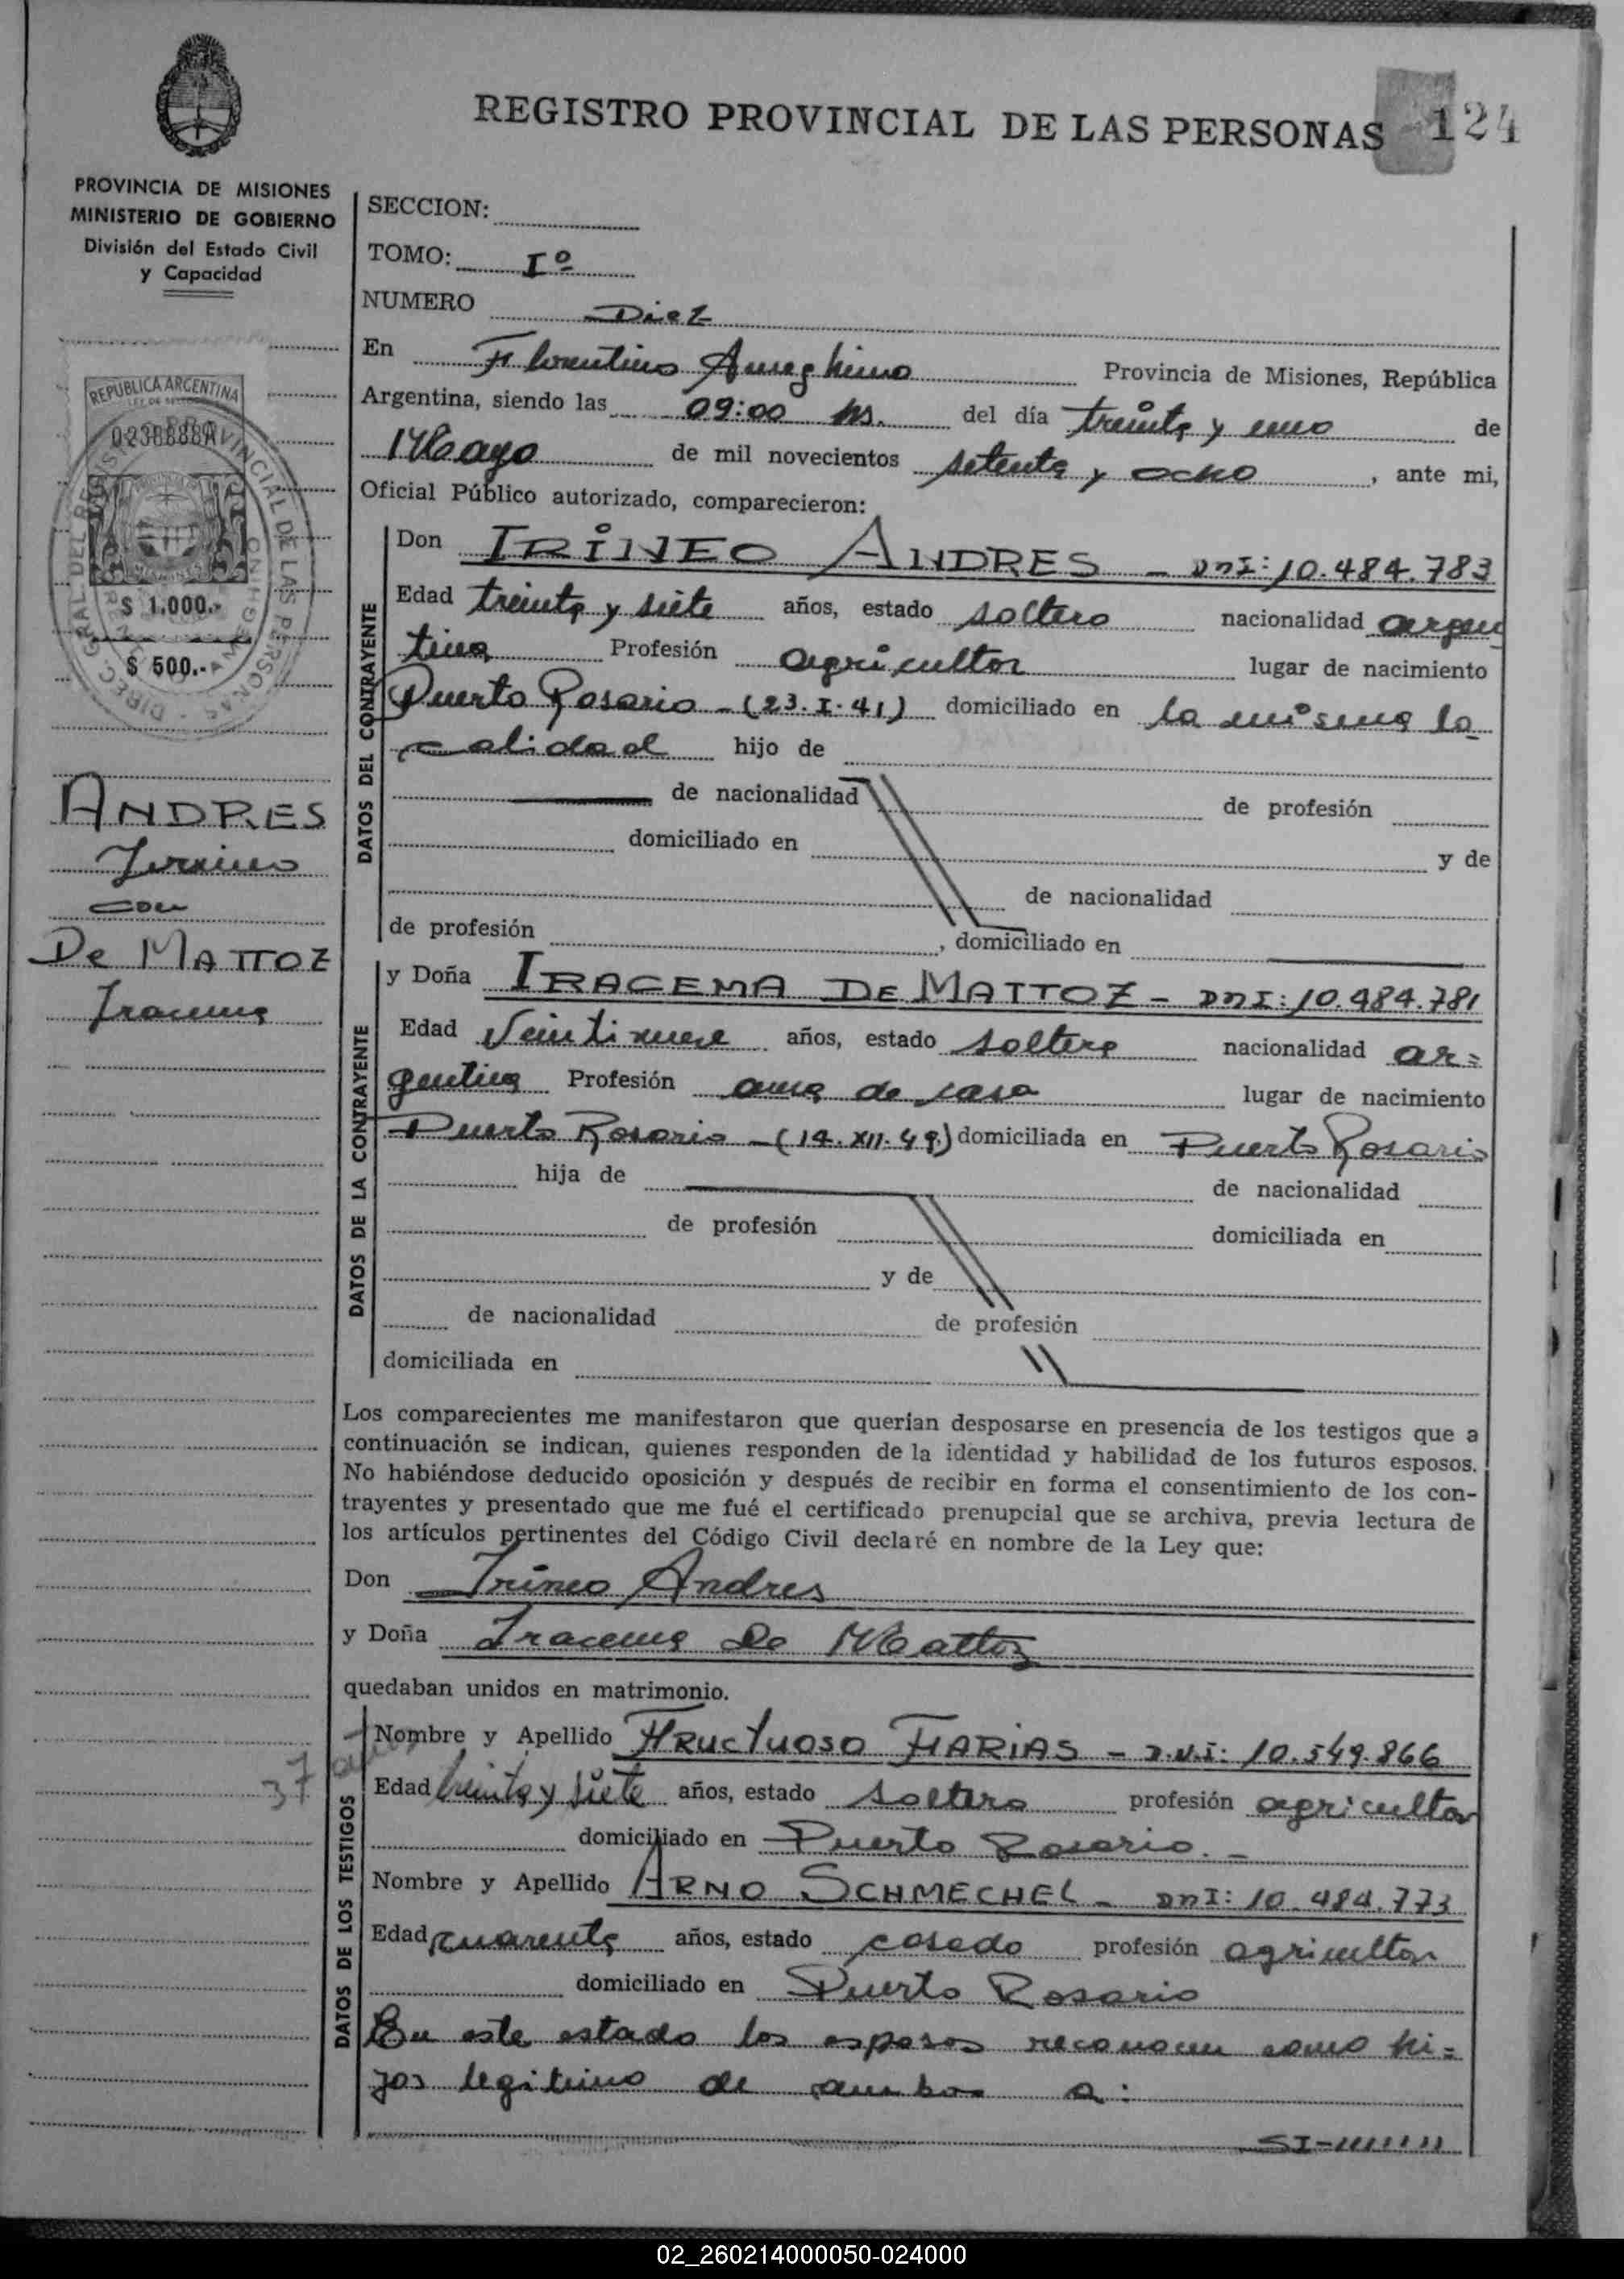 REGISTRO PROVINCIAL DE LAS PERSONAS 124
PROVINCIA DE MISIONES
MINISTERIO DE GOBIERNO
División del Estado Civil
y Capacidad
SECCION:
TOMO: Iº
NUMERO Diez
En Florentino Ameghino Provincia de Misiones, República
Argentina, siendo las 09:00 hs. del día treinta y uno de
Mayo de mil novecientos setenta y ocho, ante mi,
Oficial Público autorizado, comparecieron:
REPUBLICA ARGENTINA
0238888A
MISIONES
$ 1.000.-
$ 500.-
ANDRES
Irineo
con
De MATTOZ
Iracema
DATOS DEL CONTRAYENTE
Don IRINEO ANDRES - DNI: 10.484.783
Edad treinta y siete años, estado soltero nacionalidad argen
tina Profesión agricultor lugar de nacimiento
Puerto Rosario - (23.I.41) domiciliado en la misma lo
calidad hijo de
de nacionalidad de profesión
domiciliado en y de
de nacionalidad
de profesión , domiciliado en
DATOS DE LA CONTRAYENTE
y Doña IRACEMA DE MATTOZ - DNI: 10.484.781
Edad Veintinueve años, estado soltera nacionalidad ar=
gentina Profesión ama de casa lugar de nacimiento
Puerto Rosario - (14.XII.49.) domiciliada en Puerto Rosario
hija de de nacionalidad
de profesión domiciliada en
y de
de nacionalidad de profesión
domiciliada en
Los comparecientes me manifestaron que querían desposarse en presencia de los testigos que a
continuación se indican, quienes responden de la identidad y habilidad de los futuros esposos.
No habiéndose deducido oposición y después de recibir en forma el consentimiento de los con-
trayentes y presentado que me fué el certificado prenupcial que se archiva, previa lectura de
los artículos pertinentes del Código Civil declaré en nombre de la Ley que:
Don Irineo Andres
y Doña Iracema De Mattoz
quedaban unidos en matrimonio.
DATOS DE LOS TESTIGOS
Nombre y Apellido FRUCTUOSO FARIAS - D.N.I: 10.549.866
37
Edad treinta y siete años, estado soltero profesión agricultor
domiciliado en Puerto Rosario. -
Nombre y Apellido ARNO SCHMECHEL - DNI: 10.484.773
Edad cuarenta años, estado casado profesión agricultor
domiciliado en Puerto Rosario
En este estado los esposos reconocen como hi=
jos legitimo de ambos a:
02_260214000050-024000